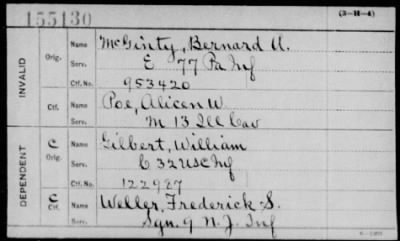 155130
(3-H-4)
INVALID
Orig.
Name McGinty, Bernard A.
Serv. E 77 Pa Inf
Ctf. No. 953420
Ctf.
Name Poe, Alicen W.
Serv. M 13 Ill Cav
DEPENDENT
C
Orig.
Name Gilbert, William
Serv. C 32 USC Inf
Ctf. No. 122987
C
Ctf.
Name Weller, Frederick S.
Serv. Sgn. 9 N. J. Inf